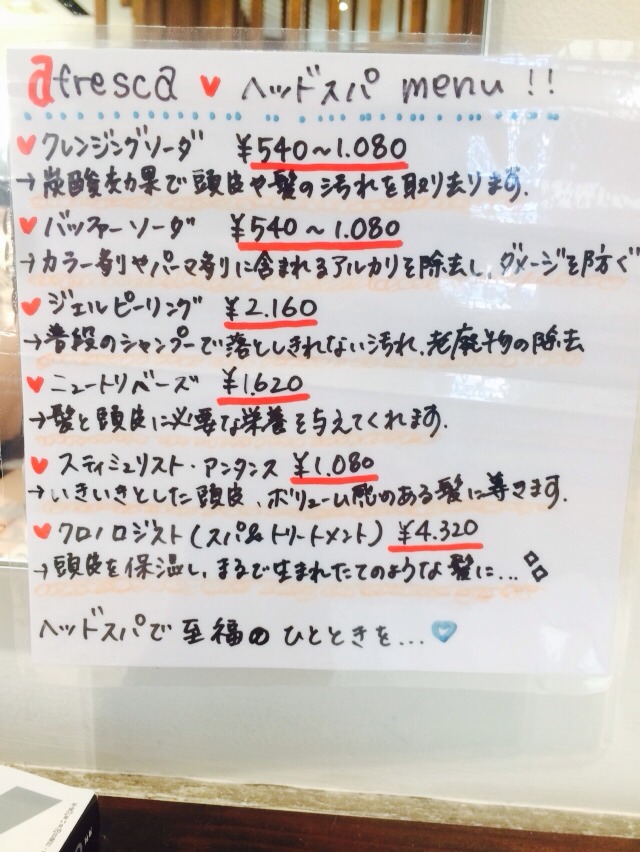 afresca ♥ ヘッドスパ menu !!
♥ クレンジングソーダ ¥540〜1.080
→炭酸効果で頭皮や髪の汚れを取り去ります.
♥ バッファーソーダ ¥540〜1.080
→カラー剤やパーマ剤に含まれるアルカリを除去し、ダメージを防ぐ
♥ ジェルピーリング ¥2.160
→普段のシャンプーで落としきれない汚れ、老廃物の除去
♥ ニュートリベーズ ¥1.620
→髪と頭皮に必要な栄養を与えてくれます.
♥ スティミュリスト・アンタンス ¥1.080
→いきいきとした頭皮、ボリューム感のある髪に導きます.
♥ クロノロジスト(スパ&トリートメント) ¥4.320
→頭皮を保湿し、まるで生まれたてのような髪に...
ヘッドスパで至福のひとときを...♥